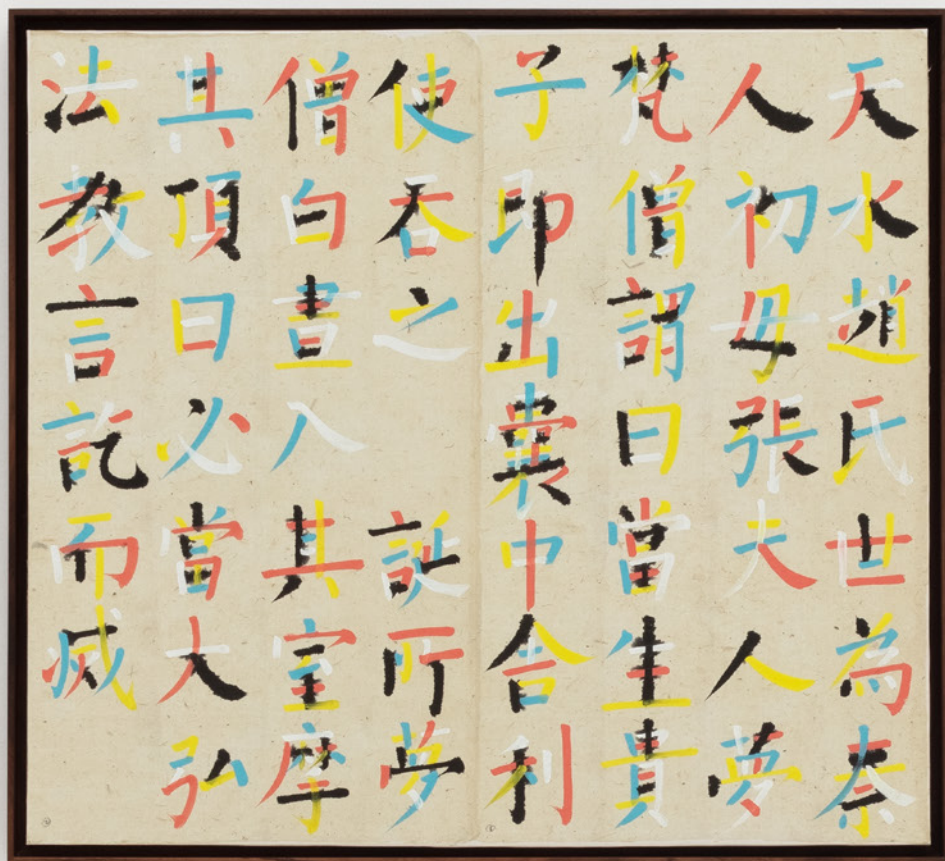 天水趙氏世為秦
人初母張夫人夢
梵僧謂曰當生貴
子即出囊中舍利
使吞之 誕所夢
僧白晝入其室摩
其頂曰必當大弘
法教言訖而滅